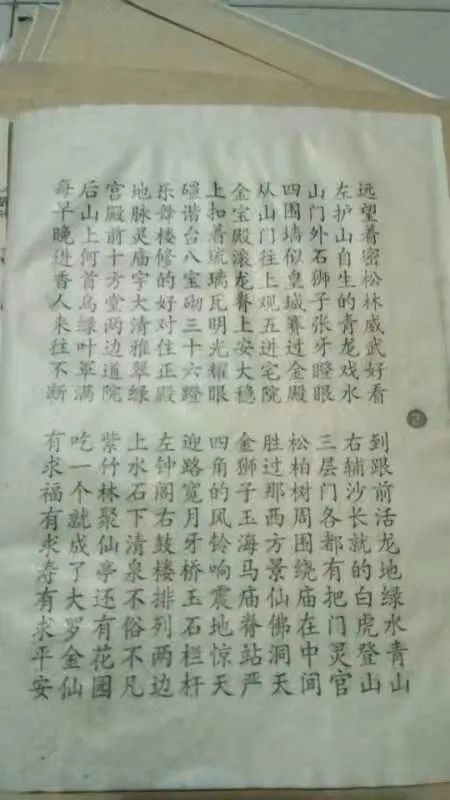 远望着密松林威武好看
到跟前活龙地绿水青山
左护山自生的青龙戏水
右辅沙长就的白虎登山
山门外石狮子张牙瞪眼
三层门各都有把门灵官
四围墙似皇城赛过金殿
松柏树周围绕庙在中间
从山门往上观五进宅院
胜过那西方景仙佛洞天
金宝殿滚龙脊上安大稳
金狮子玉海马庙脊站严
上扣着琉璃瓦明光耀眼
四角的风铃响震地惊天
礓谐台八宝砌三十六蹬
迎路宽月牙桥玉石栏杆
乐舞楼修的好对住正殿
左钟阁右鼓楼排列两边
地脉灵庙宇大清雅翠绿
上水石下清泉不俗不凡
宫殿前十方堂两边道院
紫竹林聚仙亭还有花园
后山上何首乌绿叶罩满
吃一个就成了大罗金仙
每早晚进香人来往不断
有求福有求寿有求平安
2